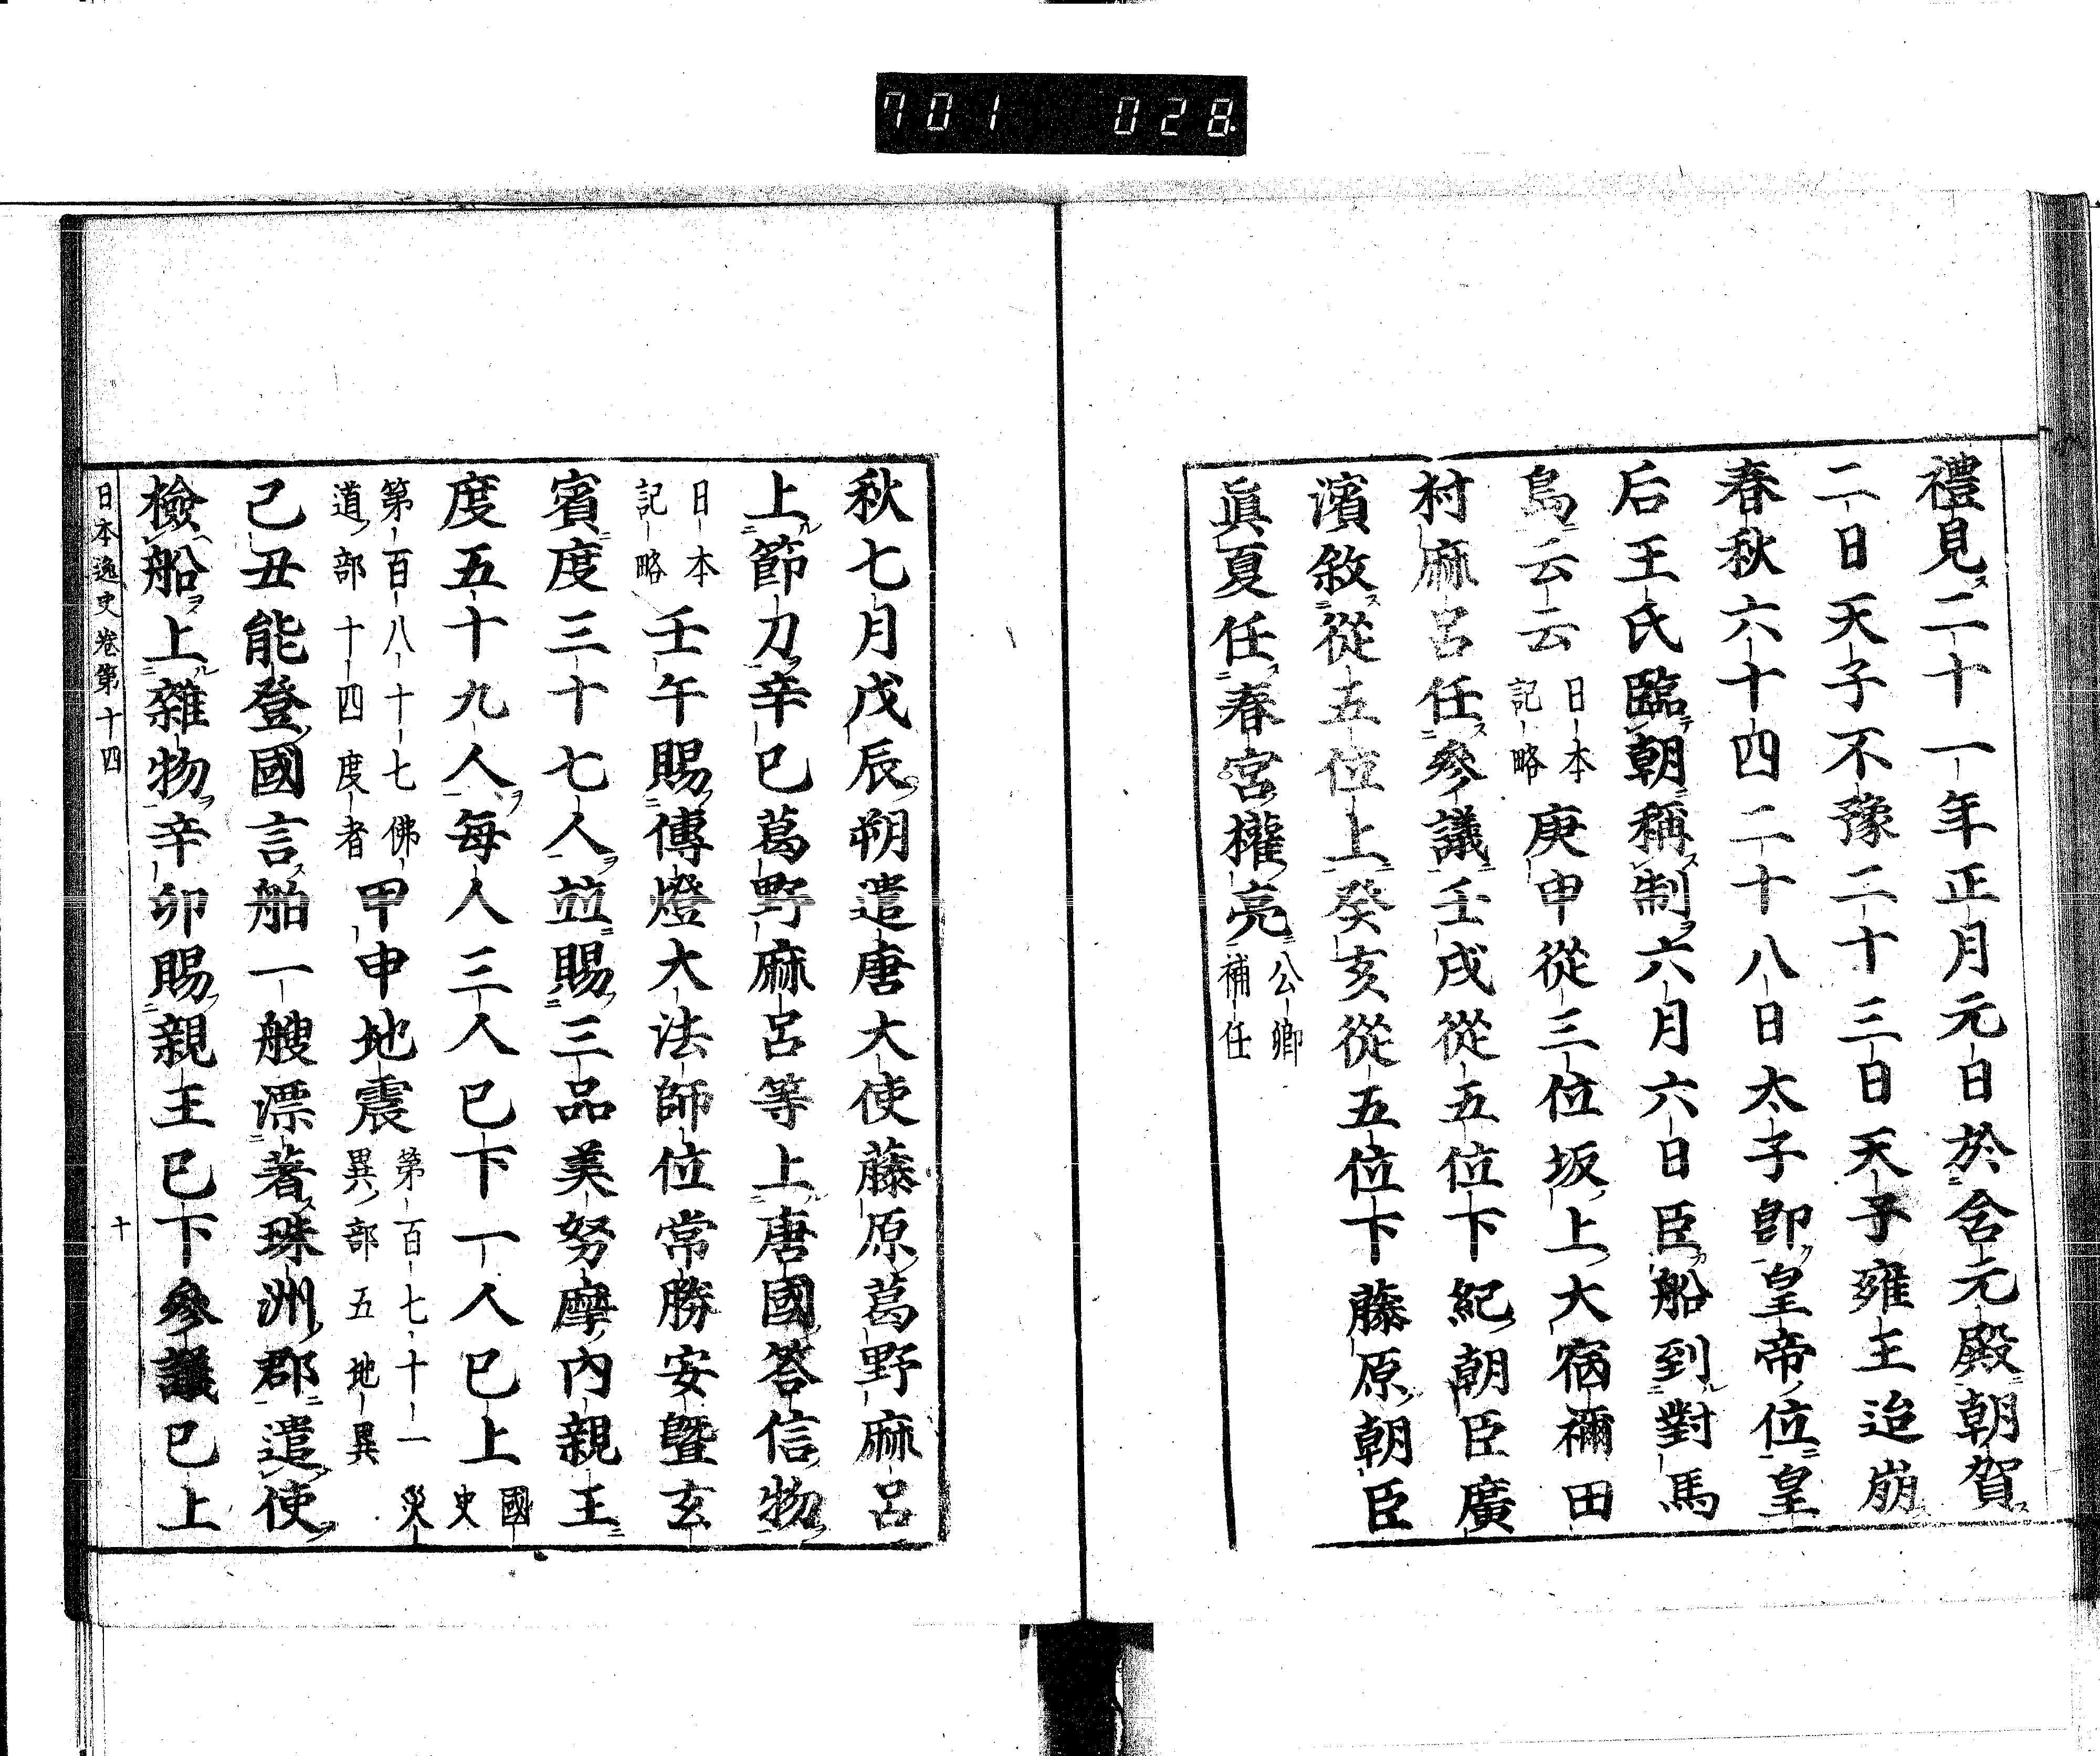 701 028
禮見二十一年正月元日於含元殿朝賀
二日天子不豫二十三日天子雍王迨崩
春秋六十四二十八日太子卽皇帝位皇
后王氏臨朝稱制六月六日臣船到對馬
島云云日本記略庚申從三位坂上大宿禰田
村麻呂任參議壬戌從五位下紀朝臣廣
濱敘從五位上癸亥從五位下藤原朝臣
眞夏任春宮權亮公卿補任
秋七月戊辰朔遣唐大使藤原葛野麻呂
上節刀辛巳葛野麻呂等上唐國答信物
日本記略壬午賜傳燈大法師位常勝安曁玄
賓度三十七人並賜三品美努摩內親王
度五十九人每人三人已下一人已上國史
第百八十七佛道部十四度者甲申地震第百七十一災異部五地異
己丑能登國言舶一艘漂著珠洲郡遣使
檢船上雜物辛卯賜親王已下參議已上
日本逸史卷第十四 十